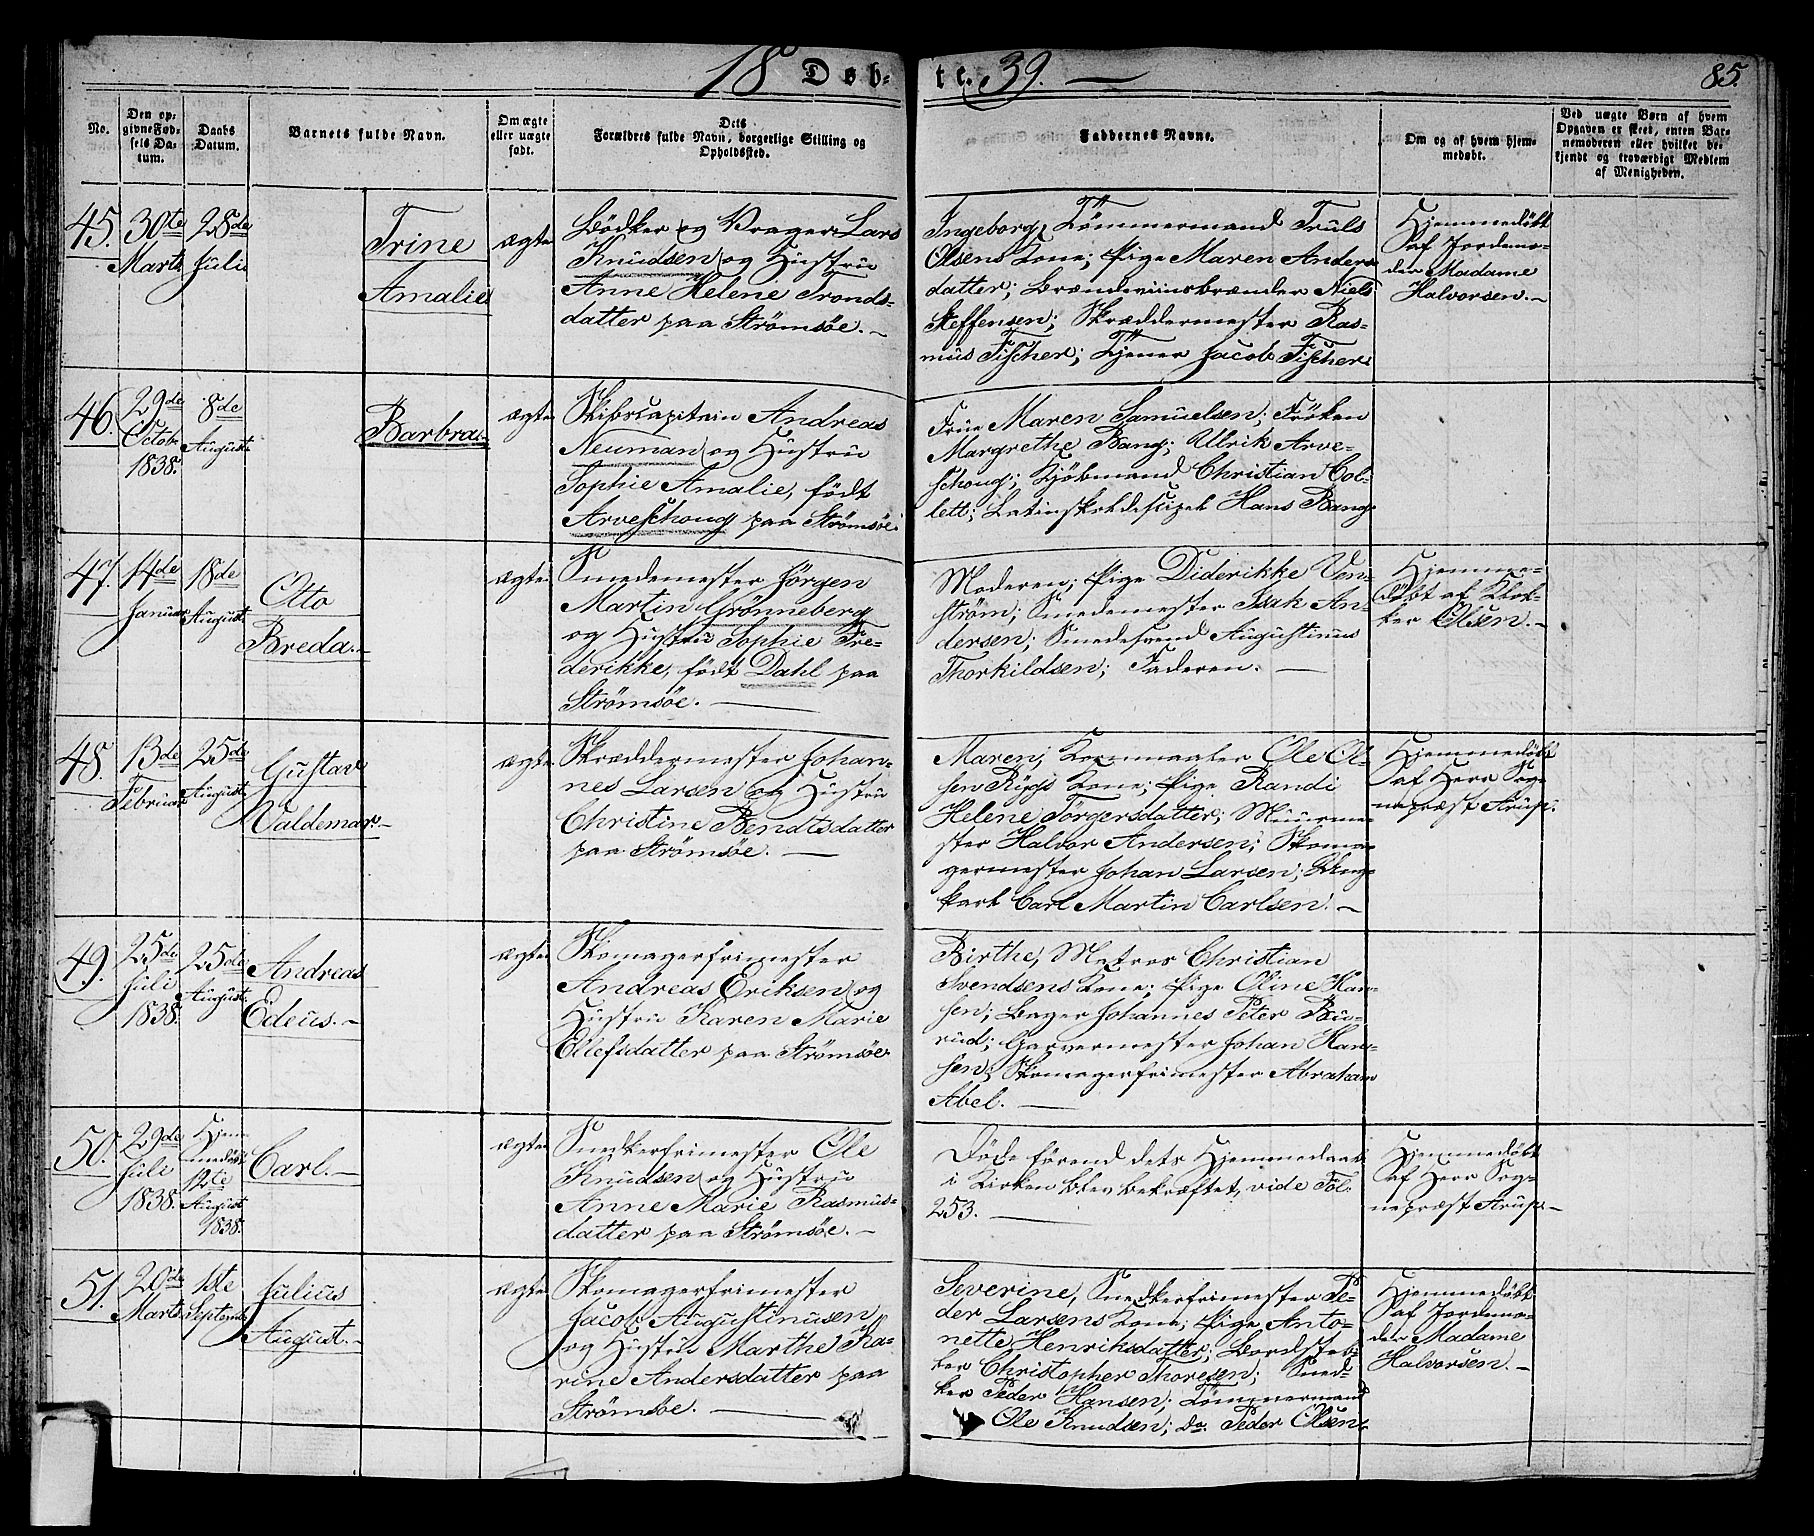 18 Døb-
te. 39. —
85.
No.
Den op-
givne Fød-
sels Da-
tum.
Daabs
Datum.
Barnets fulde Navn.
Om ægte
eller uægte
født.
Dets
Forældres fulde Navn, borgerlige Stilling og
Opholdssted.
Faddernes Navne.
Om og af hvem hjem-
medøbt.
Ved uægte Børn af hvem
Opgaven er skeet, enten Bar-
nemoderen eller hvilket be-
kjendt og troværdigt Medlem
af Menigheden.
45.
30te
Marts
28de
Juli
Trine
Amalie
ægte
Bødker og Vrager Lars
Knudsen og Hustru
Anne Helene Tronds-
datter paa Strømsøe. —
Ingeborg, Tømmermand Truls
Olsens Kone; Pige Maren Anders
datter; Brændeviinsbrænder Niels
Steffensen; Skræddermester Ras-
mus Fischer; Tjener Jacob Fischer.
Hjemmedøbt
af Jordemo-
der Madame
Halvorsen. —
46.
29de
Octob.
1838.
8de
August.
Barbra. —
ægte
Skibscapitain Andreas
Neuman og Hustru
Sophie Amalie, født
Arveschoug paa Strømsøe.
Frue Maren Samuelsen; Frøken
Margrethe Bang; Ullrik Arve-
schoug; Kjøbmand Christian Col-
lett; Latinskoledisipel Hans Bang.
47.
14de
Januar
18de
August.
Otto
Breda. —
ægte
Smedemester Jørgen
Martin Grønneberg
og Hustru Sophie Fre-
derikke, født Dahl paa
Strømsøe. —
Moderen; Pige Diderikke Ven-
strøm; Smedemester Isak An-
dersen; Smedesvend Augustinus
Thorkildsen; Faderen. —
Hjemme-
døbt af Klok-
ker Olsen. —
48.
13de
Februar
25de
August.
Gustav
Valdemar. —
ægte
Skræddermester Johan-
nes Larsen og Hustru
Christine Bendtsdatter
paa Strømsøe. —
Maren, Kornmaaler Ole Ol-
sen Ryggs Kone; Pige Randi
Helene Tørgersdatter; Muurme-
ster Halvor Andersen; Skoma-
germester Johan Larsen; Ung-
karl Carl Martin Carlsen. —
Hjemmedøbt
af Herr Sog-
nepræst Arup.
49.
25de
Juli
1838.
25de
August.
Andreas
Edeüs. —
ægte
Skomagerfrimester
Andreas Eriksen og
Hustru Karen Marie
Ellefsdatter paa Strømsøe.
Birthe, Matros Christian
Svendsens Kone; Pige Oline Han-
sen; Bager Johannes Peter Bu-
rud; Garvermester Johan Han-
sen; Skomagerfrimester Abraham
Abel. —
50.
29de
Juli
1838.
Hjem-
medøbt
12te
August
1838.
Carl. —
ægte
Snedkerfrimester Ole
Knudsen og Hustru
Anne Marie Rasmus-
datter paa Strømsøe. —
Døde førend dets Hjemmedaab
i Kirken blev bekræftet, vide Fol.
253. —
Hjemmedøbt
af Herr Sog-
nepræst Arup. —
51.
20de
Marts
1ste
Septemb.
Julius
August. —
ægte
Skomagerfrimester
Jacob Augustinusen
og Hustru Marthe Ka-
rine Andersdatter paa
Strømsøe. —
Severine, Snedkerfrimester Pe-
der Larsens Kone; Pige Anto-
nette Henriksdatter; Bordstab-
ler Christopher Thoresen; Sned-
ker Peder Hansen; Tømmermand
Ole Knudsen; Do. Peder Olsen.
Hjemmedøbt
af Jordemo-
der Madame
Halvorsen. —